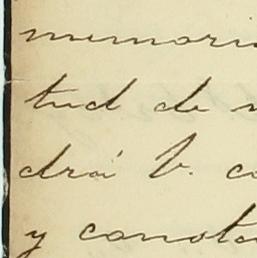 memori
tud de
drá V. co
y consta